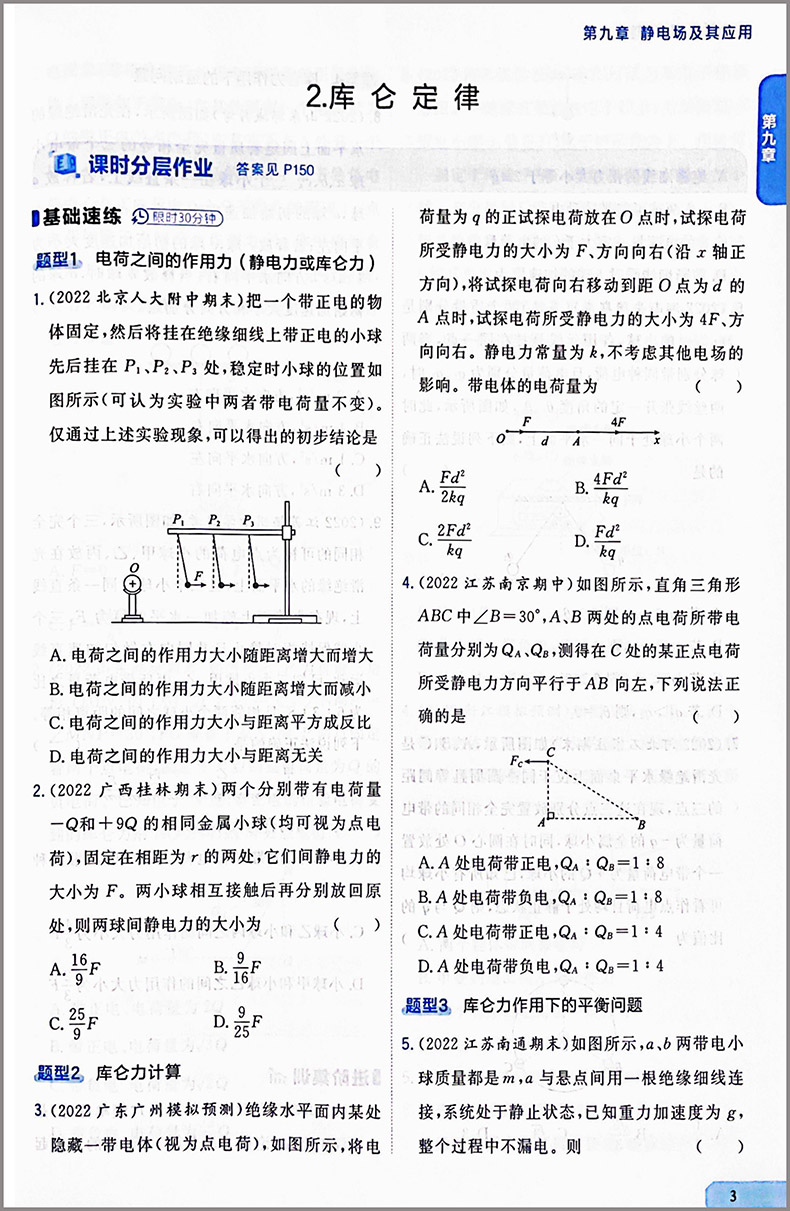 第九章 静电场及其应用
第九章
2.库仑定律
课时分层作业 答案见 P150
基础速练 限时30分钟
题型1 电荷之间的作用力（静电力或库仑力）
1.(2022 北京人大附中期末)把一个带正电的物
体固定，然后将挂在绝缘细线上带正电的小球
先后挂在 P₁、P₂、P₃ 处，稳定时小球的位置如
图所示(可认为实验中两者带电荷量不变)。
仅通过上述实验现象，可以得出的初步结论是
( )
P₁ P₂ P₃
O
F
A. 电荷之间的作用力大小随距离增大而增大
B. 电荷之间的作用力大小随距离增大而减小
C. 电荷之间的作用力大小与距离平方成反比
D. 电荷之间的作用力大小与距离无关
2.(2022 广西桂林期末)两个分别带有电荷量
－Q和＋9Q 的相同金属小球(均可视为点电
荷)，固定在相距为 r 的两处，它们间静电力的
大小为 F。两小球相互接触后再分别放回原
处，则两球间静电力的大小为 ( )
A. 16/9 F B. 9/16 F
C. 25/9 F D. 9/25 F
题型2 库仑力计算
3.(2022 广东广州模拟预测)绝缘水平面内某处
隐藏一带电体(视为点电荷)，如图所示，将电
荷量为 q 的正试探电荷放在 O 点时，试探电荷
所受静电力的大小为 F、方向向右(沿 x 轴正
方向)，将试探电荷向右移动到距 O 点为 d 的
A 点时，试探电荷所受静电力的大小为 4F、方
向向右。静电力常量为 k，不考虑其他电场的
影响。带电体的电荷量为 ( )
F 4F
O d A x
A. Fd²/2kq B. 4Fd²/kq
C. 2Fd²/kq D. Fd²/kq
4.(2022 江苏南京期中)如图所示，直角三角形
ABC 中∠B＝30°，A、B 两处的点电荷所带电
荷量分别为 Q_A、Q_B，测得在 C 处的某正点电荷
所受静电力方向平行于 AB 向左，下列说法正
确的是 ( )
F_C C
A B
A. A 处电荷带正电，Q_A∶Q_B＝1∶8
B. A 处电荷带负电，Q_A∶Q_B＝1∶8
C. A 处电荷带正电，Q_A∶Q_B＝1∶4
D. A 处电荷带负电，Q_A∶Q_B＝1∶4
题型3 库仑力作用下的平衡问题
5.(2022 江苏南通期末)如图所示，a、b 两带电小
球质量都是 m，a 与悬点间用一根绝缘细线连
接，系统处于静止状态，已知重力加速度为 g，
整个过程中不漏电。则 ( )
3